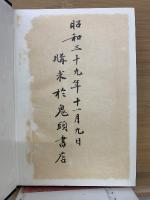 昭和三十九年十一月九日
購求於鬼頭書店